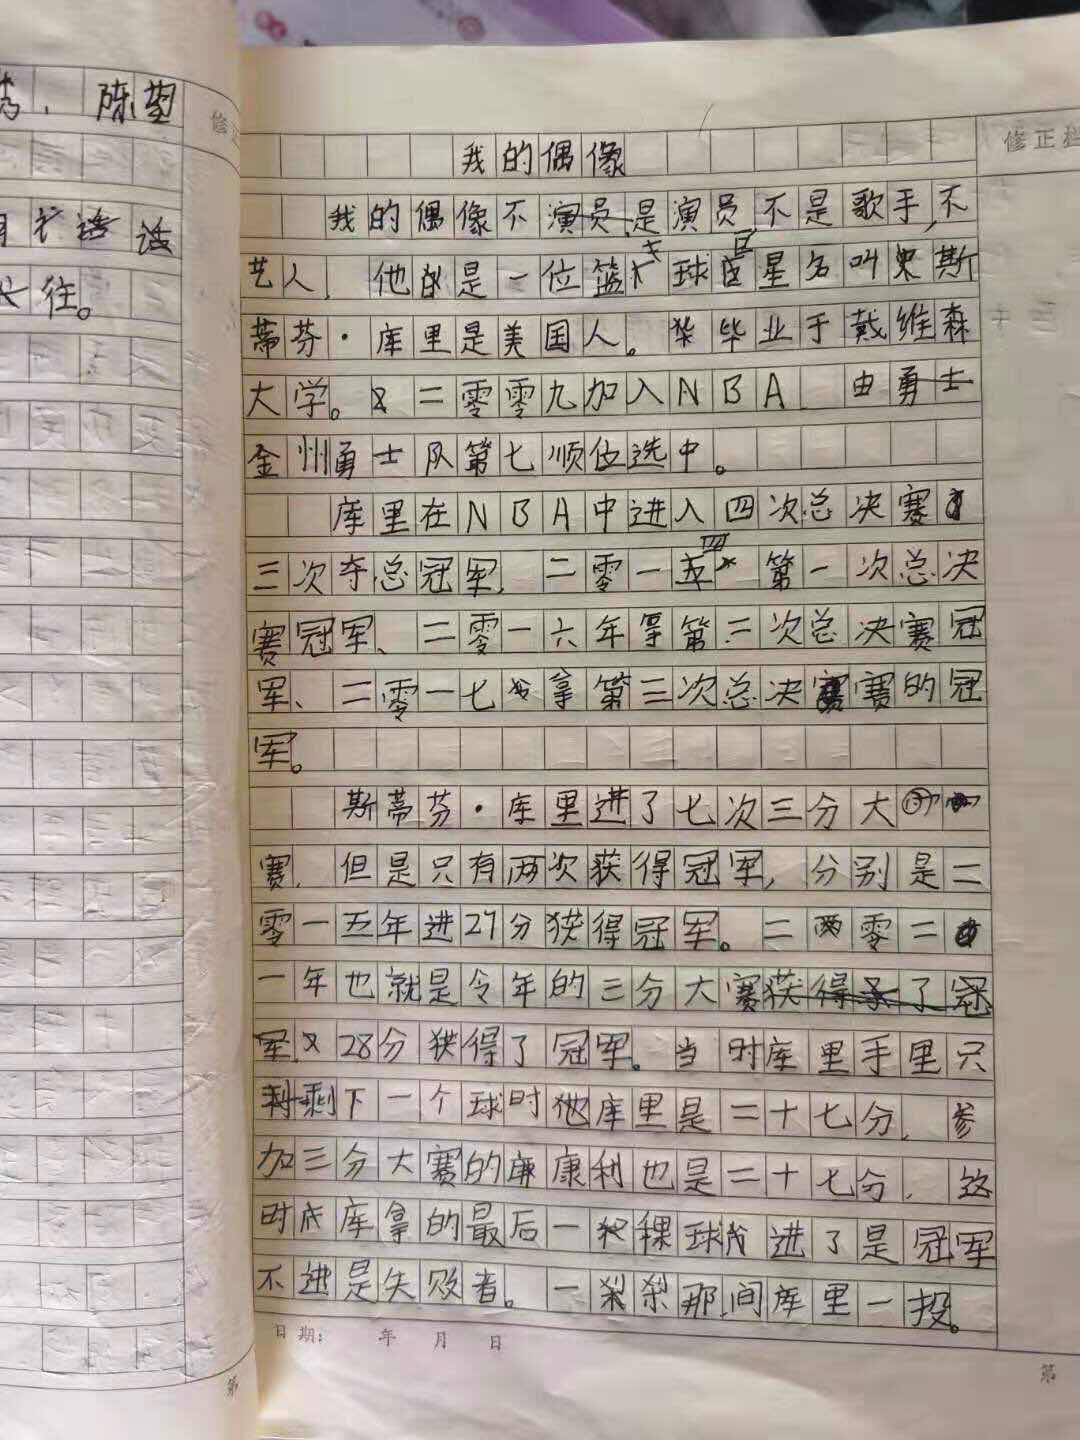 陈塑
往。
修正栏
我的偶像
我的偶像不是演员,不是歌手,不
艺人,他是一位篮球巨星名叫史斯
蒂芬·库里是美国人。毕业于戴维森
大学。二零零九加入NBA、由
金州勇士队第七顺位选中。
库里在NBA中进入四次总决赛
三次夺总冠军,二零一四第一次总决
赛冠军、二零一六年拿第二次总决赛冠
军、二零一七拿第三次总决赛的冠
军。
斯蒂芬·库里进了七次三分大
赛,但是只有两次获得冠军,分别是二
零一五年进27分获得冠军。二零二
一年也就是今年的三分大赛
28分获得了冠军。当时库里手里只
剩下一个球时他库里是二十七分,参
加三分大赛的康利也是二十七分,这
时库拿的最后一稞球进了是冠军
不进是失败者。一刹那,间库里一投。
日期: 年 月 日
第
第